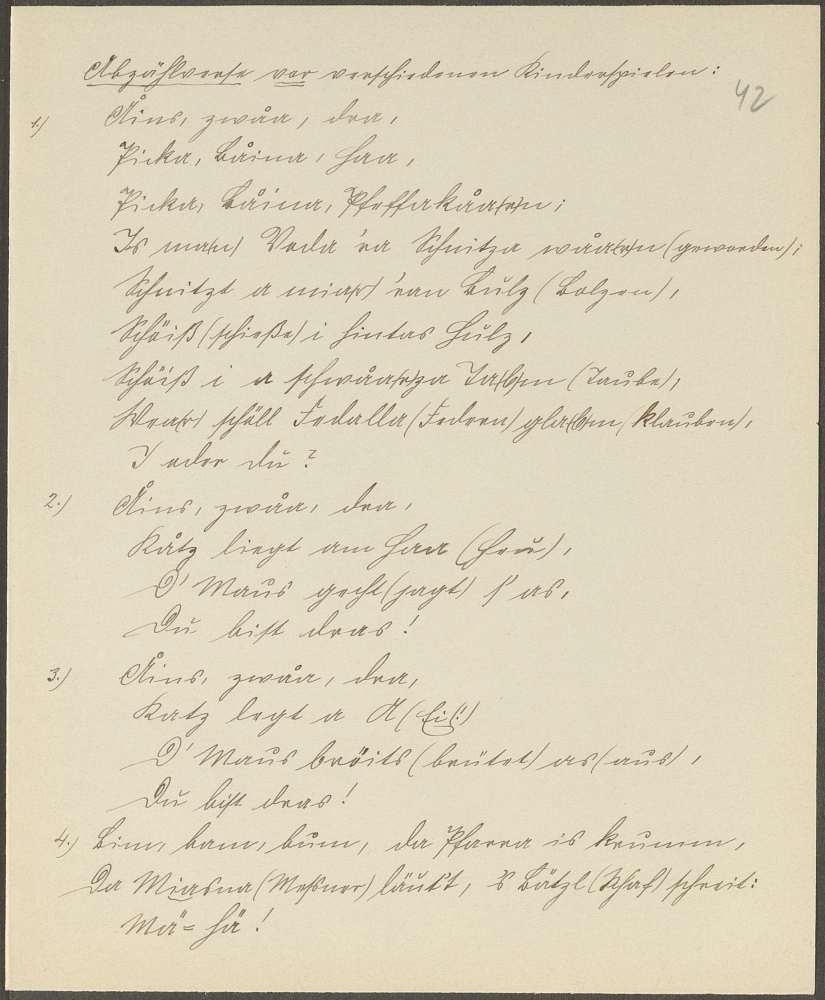 Abzählverse vor verschiedenen Kinderspielen:
42
1.) Åins, zwåa, dra,
Picka, Båina, Haa,
Picka, Båina, Pfeffakåa(r)n;
Is ma(n) Voda 'ra Schnitza wåa(r)n (geworden);
Schnitzt a mia(r) 'ran Bulz (Bolzen),
Schöiß (schieße) i hintas Hulz,
Schöiß i a schwåa(r)za Ta(b)m (Taube),
Wea(r) schöll Fedalla (Federn) gla(b)m (klauben),
I oder du?
2.) Åins, zwåa, dra,
Kåtz liegt am Haa (Heu),
D' Maus gecht (jagt) s' as,
Du bist dras!
3.) Åins, zwåa, dra,
Katz legt a A (Ei!)
D' Maus bröits (brütet) as (aus),
Du bist dras!
4.) Bim, bam, bum, da Pfarra is krumm,
Da Miasna (Messner) läutt, 's Bätzl (Schaf) schreit:
Mä=hä!